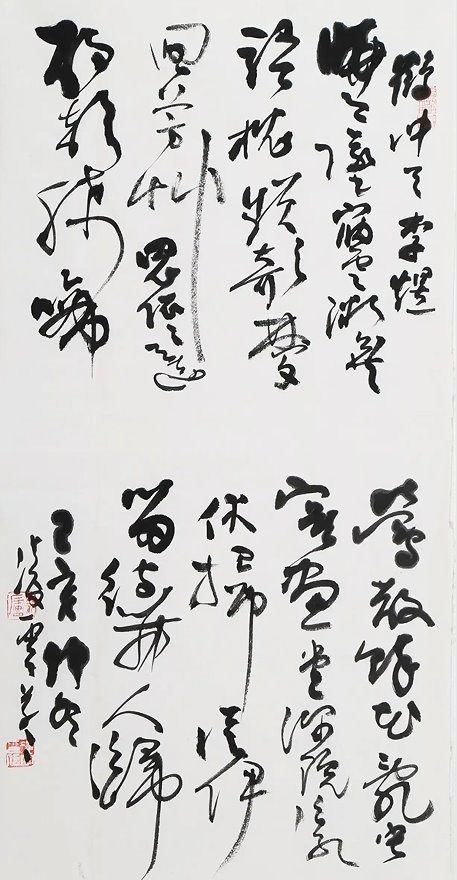 鶴冲天 李煜
曉月墜宿雲微無
語枕頻欹夢
回芳艸思依〻天遠
雁聲稀啼
鶯散餘花亂寂
寞畫堂深院片紅
休掃盡從伊
留待舞人歸
己亥初冬